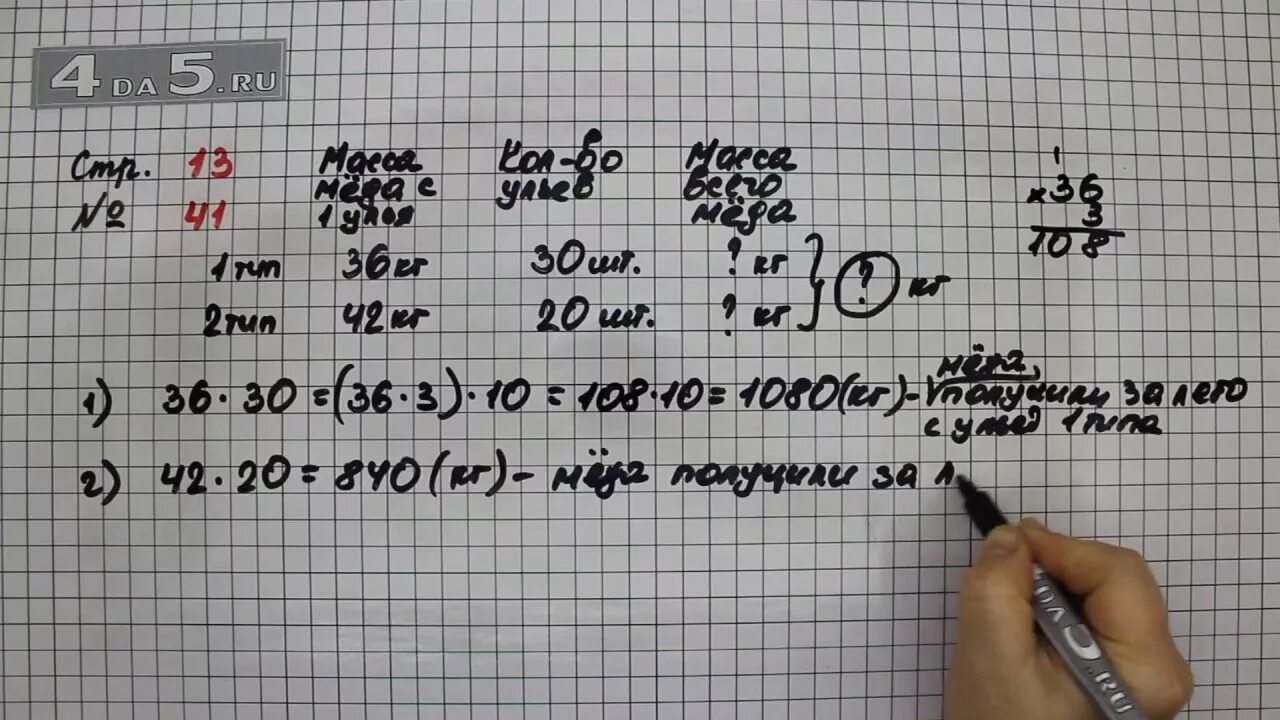 4DA5.RU
Стр. 13 Масса Кол-во Масса
мёда с ульев всего
№ 41 1 улья мёда
1 тип 36 кг 30 шт. ? кг
2 тип 42 кг 20 шт. ? кг
? кг
1
× 36
3
108
мёда,
1) 36 · 30 = (36 · 3) · 10 = 108 · 10 = 1080 (кг) - получили за лето
с ульев 1 типа
2) 42 · 20 = 840 (кг) - мёда получили за л
4DA5.RU